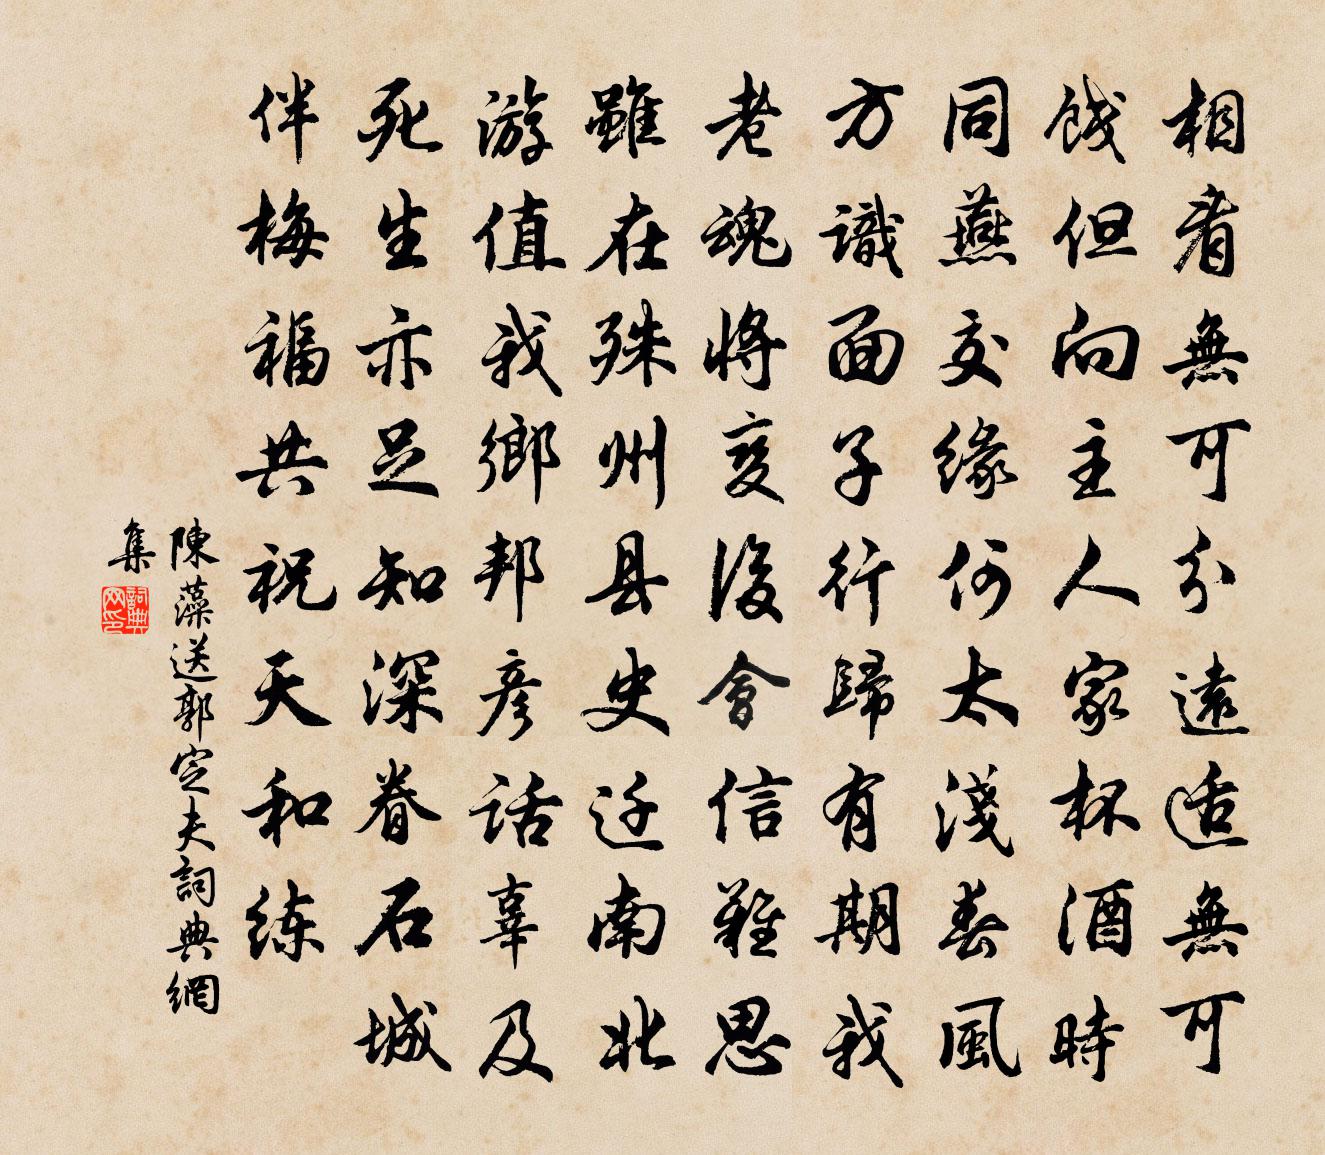 相看無可分遠适無可
餞但向主人家杯酒時
同燕交緣何太淺春風
方識面子行歸有期我
老魂將变後會信難思
雖在殊州县史迁南北
游值我鄉邦彦話辜及
死生亦足知深眷石城
伴梅福共祝天和练
陳藻送郭定夫詞典網
集
詞典网印